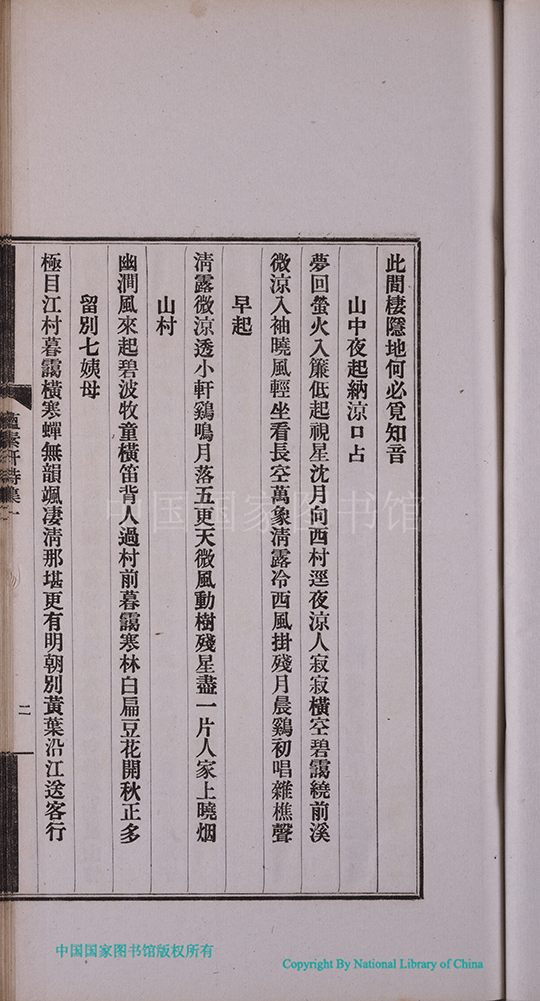 此間棲隱地何必覓知音
山中夜起納涼口占
夢回螢火入簾低起視星沈月向西村逕夜涼人寂寂橫空碧靄繞前溪
微涼入袖曉風輕坐看長空萬象淸露冷西風掛殘月晨鷄初唱雜樵聲
早起
淸露微涼透小軒鷄鳴月落五更天微風動樹殘星盡一片人家上曉烟
山村
幽澗風來起碧波牧童橫笛背人過村前暮靄寒林白扁豆花開秋正多
留別七姨母
極目江村暮靄橫寒蟬無韻颯淒淸那堪更有明朝別黃葉沿江送客行
軒詩集一
二
中国国家图书馆
中国国家图书馆版权所有
Copyright By National Library of China